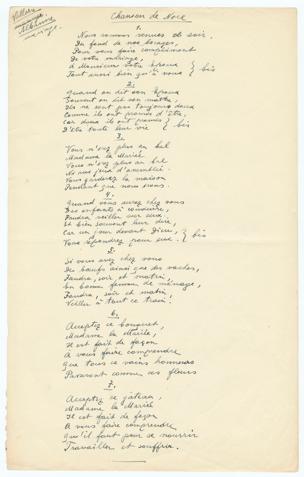 Chanson de Noce
1.
Nous sommes venues ce soir,
Du fond de nos bocages,
Pour vous faire compliment
De votre mariage,
A Monsieur votre époux } bis
Tout aussi bien qu'à vous
2.
Quand on dit son époux
Souvent on dit son maître,
Ils ne sont pas toujours doux
Comme ils ont promis d'être,
Car doux ils ont promis } bis
D'être toute leur vie
3.
Vous n'irez plus au bal
Madame la Mariée
Vous n'irez plus au bal
Ni aux jeux d'assemblée
Vous garderez la maison,
Pendant que nous irons.
4.
Quand vous aurez chez vous
Des enfants à conduire,
Faudra veiller sur eux,
Et bien souvent leur dire,
Car un jour devant Dieu, } bis
Vous répondrez pour eux.
5.
Si vous avez chez vous
Des bœufs ainsi que des vaches,
Faudra, soir et matin
En bonne femme de ménage,
Faudra, soir et matin
Veiller à tout ce train!
6.
Acceptez ce bouquet,
Madame la Mariée,
Il est fait de façon
A vous faire comprendre
Que tous ces vains honneurs
Passeront comme ces fleurs
7.
Acceptez ce gâteau,
Madame la Mariée
Il est fait de façon
A vous faire comprendre
Qu'il faut pour se nourrir
Travailler et souffrir.